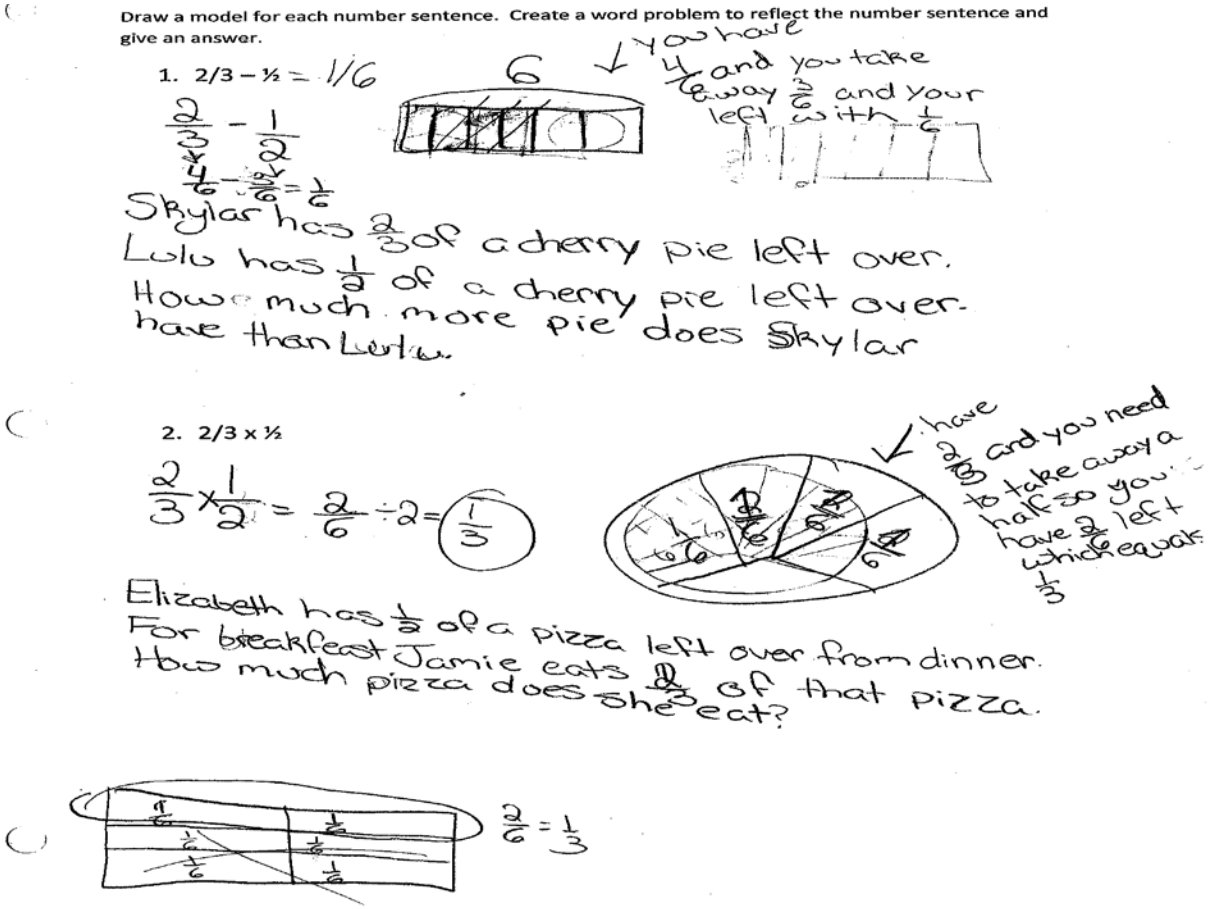 Draw a model for each number sentence. Create a word problem to reflect the number sentence and
give an answer.
1. 2/3 – ½ = 1/6
6
you have
4/6 and you take
away 3/6 and your
left with 1/6
2/3 - 1/2
4/6 - 3/6 = 1/6
Skylar has 2/3 of a cherry pie left over.
Lulu has 1/2 of a cherry pie left over.
How much more pie does Skylar
have than Lulu.
2. 2/3 x ½
2/3 x 1/2 = 2/6 ÷ 2 = 1/3
1/6 2/6
have
2/3 and you need
to take away a
half so you
have 2/6 left
which equals
1/3
Elizabeth has 1/2 of a pizza left over from dinner.
For breakfast Jamie eats 2/3 of that pizza.
How much pizza does she eat?
1/6 1/6
1/6 1/6
1/6 1/6
2/6 = 1/3